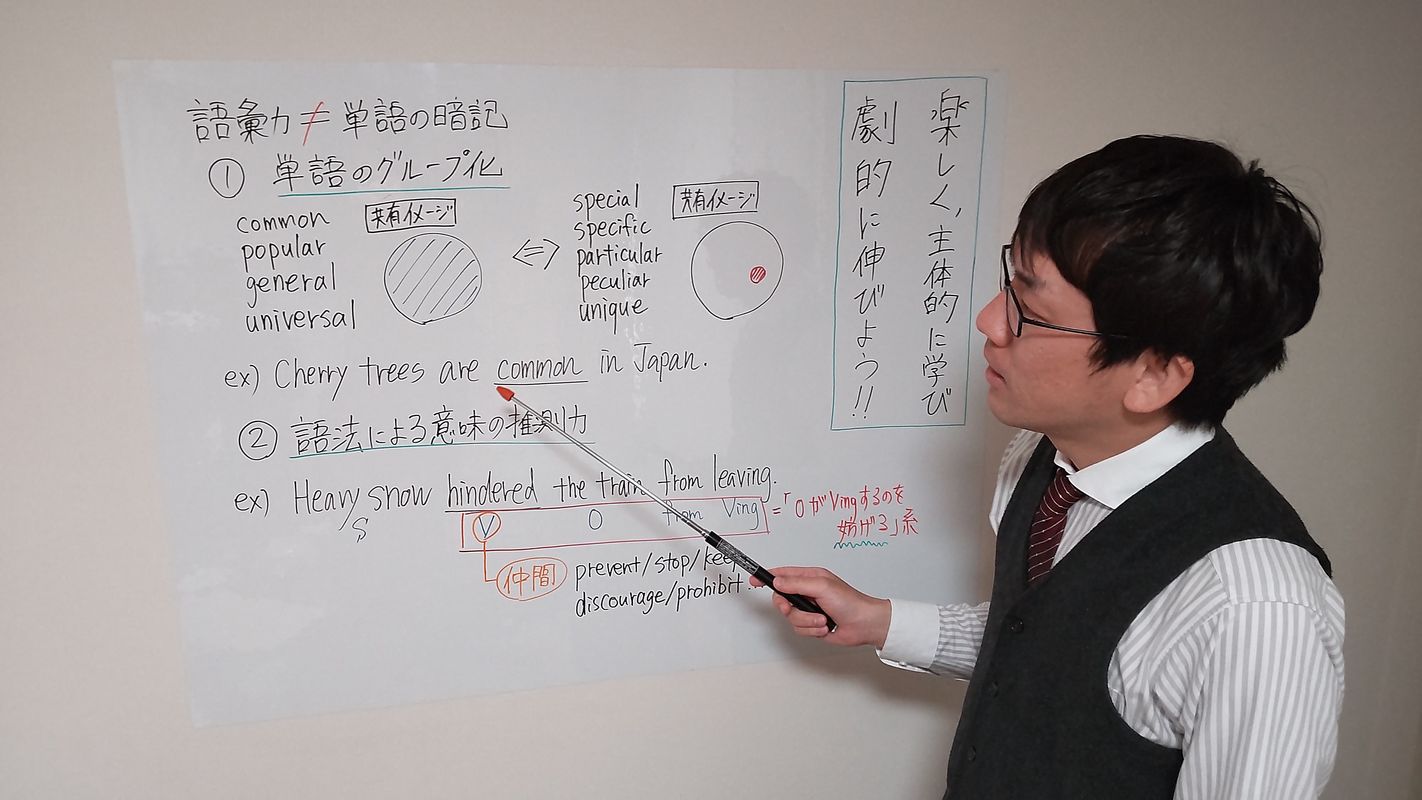 語彙力≠単語の暗記
① 単語のグループ化
common
popular
general
universal
共有イメージ
⇔
special
specific
particular
peculiar
unique
共有イメージ
ex) Cherry trees are common in Japan.
② 語法による意味の推測力
ex) Heavy snow hindered the train from leaving.
S
V O from Ving =「OがVingするのを
妨げる」系
仲間
prevent/stop/keep
discourage/prohibit...
楽しく、主体的に学び
劇的に伸びよう!!